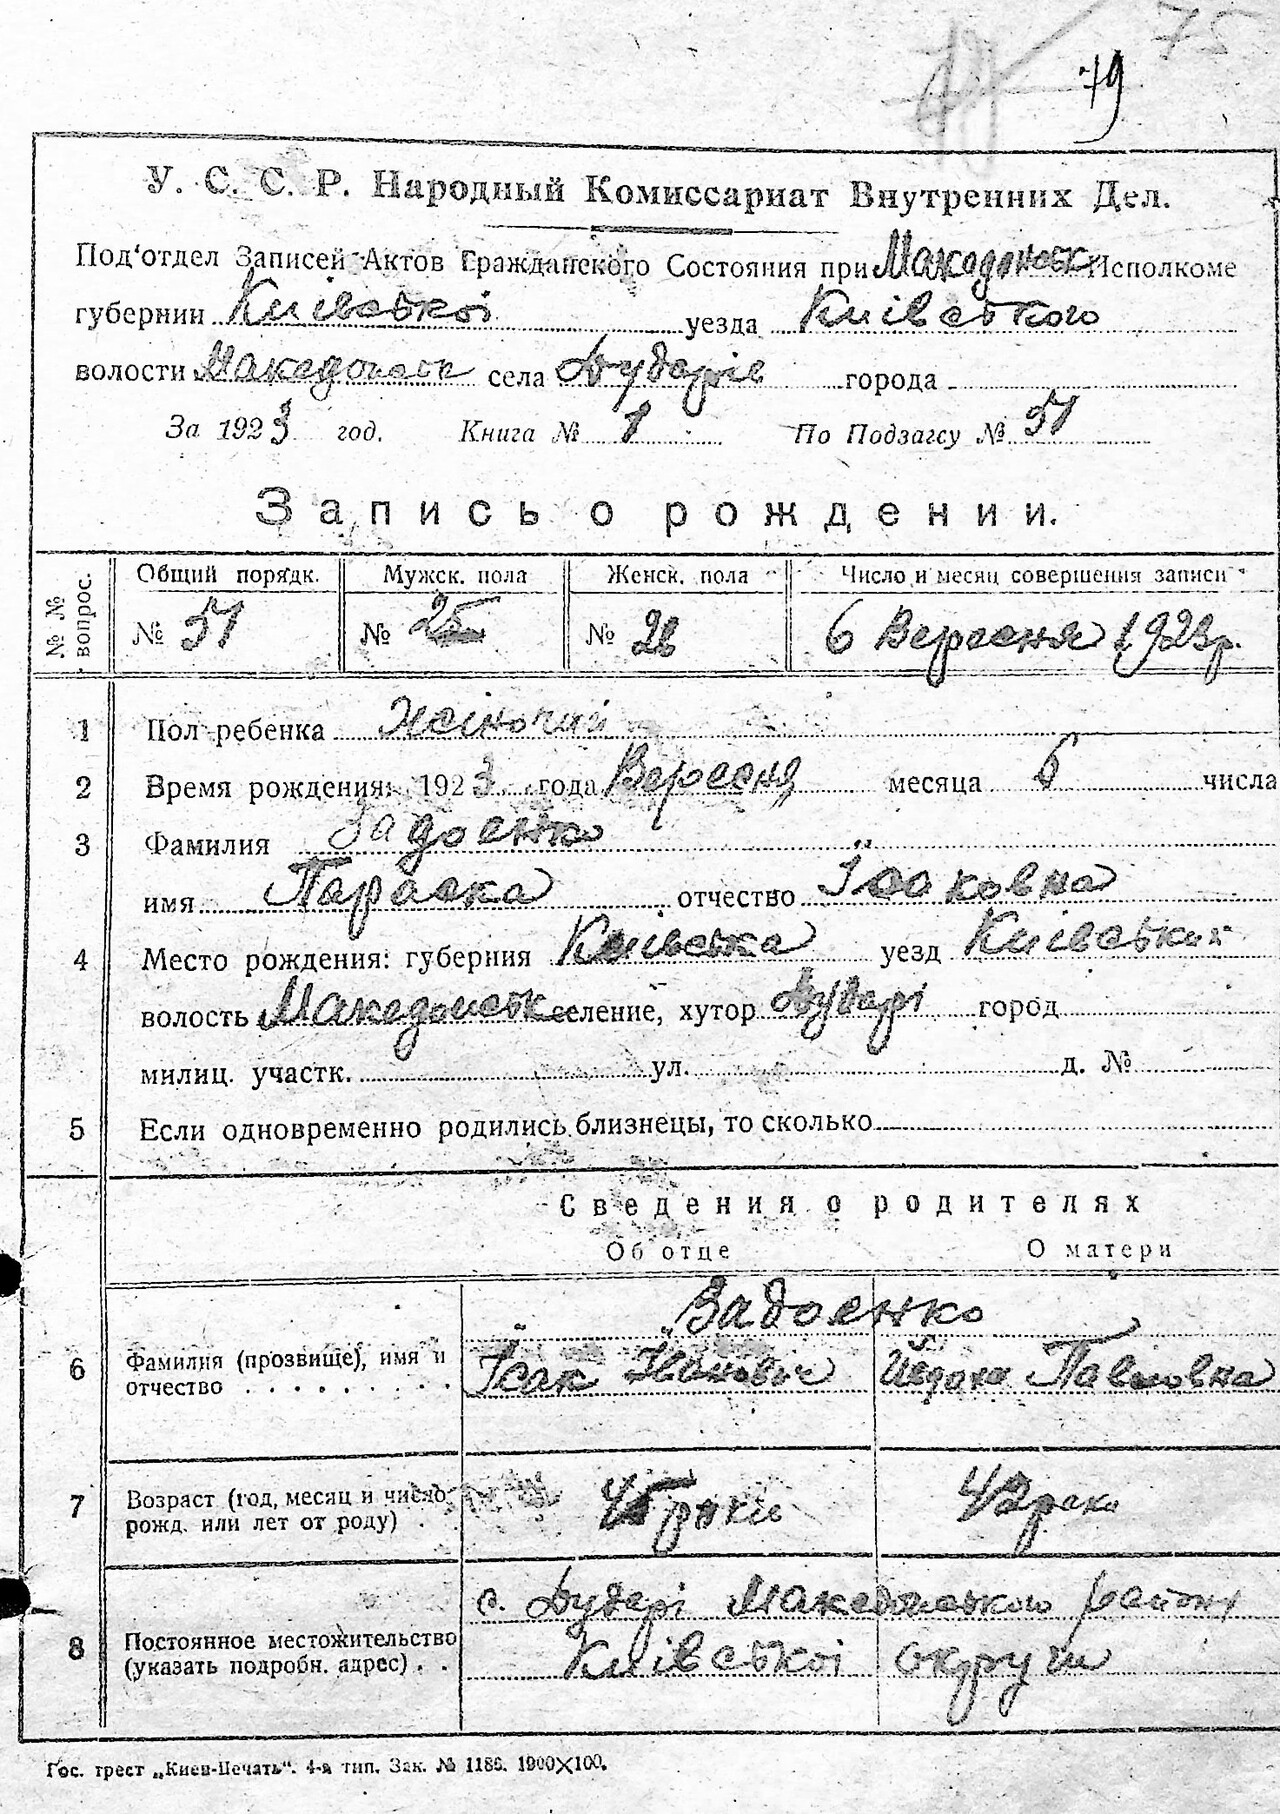 75
79
У. С. С. Р. Народный Комиссариат Внутренних Дел.
Под'отдел Записей Актов Гражданского Состояния при Македонськ Исполкоме
губернии Київської уезда Київського
волости Македонськ села Дударів города
За 1923 год. Книга № 1 По Подзагсу № 51
Запись о рождении.
№ № вопрос. Общий порядк. Мужск. пола Женск. пола Число и месяц совершения записи
№ 51 № 25 № 26 6 Вересня 1923 р.
1 Пол ребенка Жіночий
2 Время рождения: 1923 года Вересня месяца 6 числа
3 Фамилия Задоенко
имя Параска отчество Ісаковна
4 Место рождения: губерния Київська уезд Київський
волость Македонськ селение, хутор Дударі город
милиц. участк. ул. д. №
5 Если одновременно родились близнецы, то сколько
Сведения о родителях
Об отце О матери
Задоенко
6 Фамилия (прозвище), имя и Ісак Іванович Павловна
отчество
7 Возраст (год, месяц и число 45 роки 42 роки
рожд. или лет от роду)
с. Дударі Македонського району
8 Постоянное местожительство Київської округи
(указать подробн. адрес)
Гос. трест „Киев-Печать“. 4-я тип. Зак. № 1186. 1900×100.